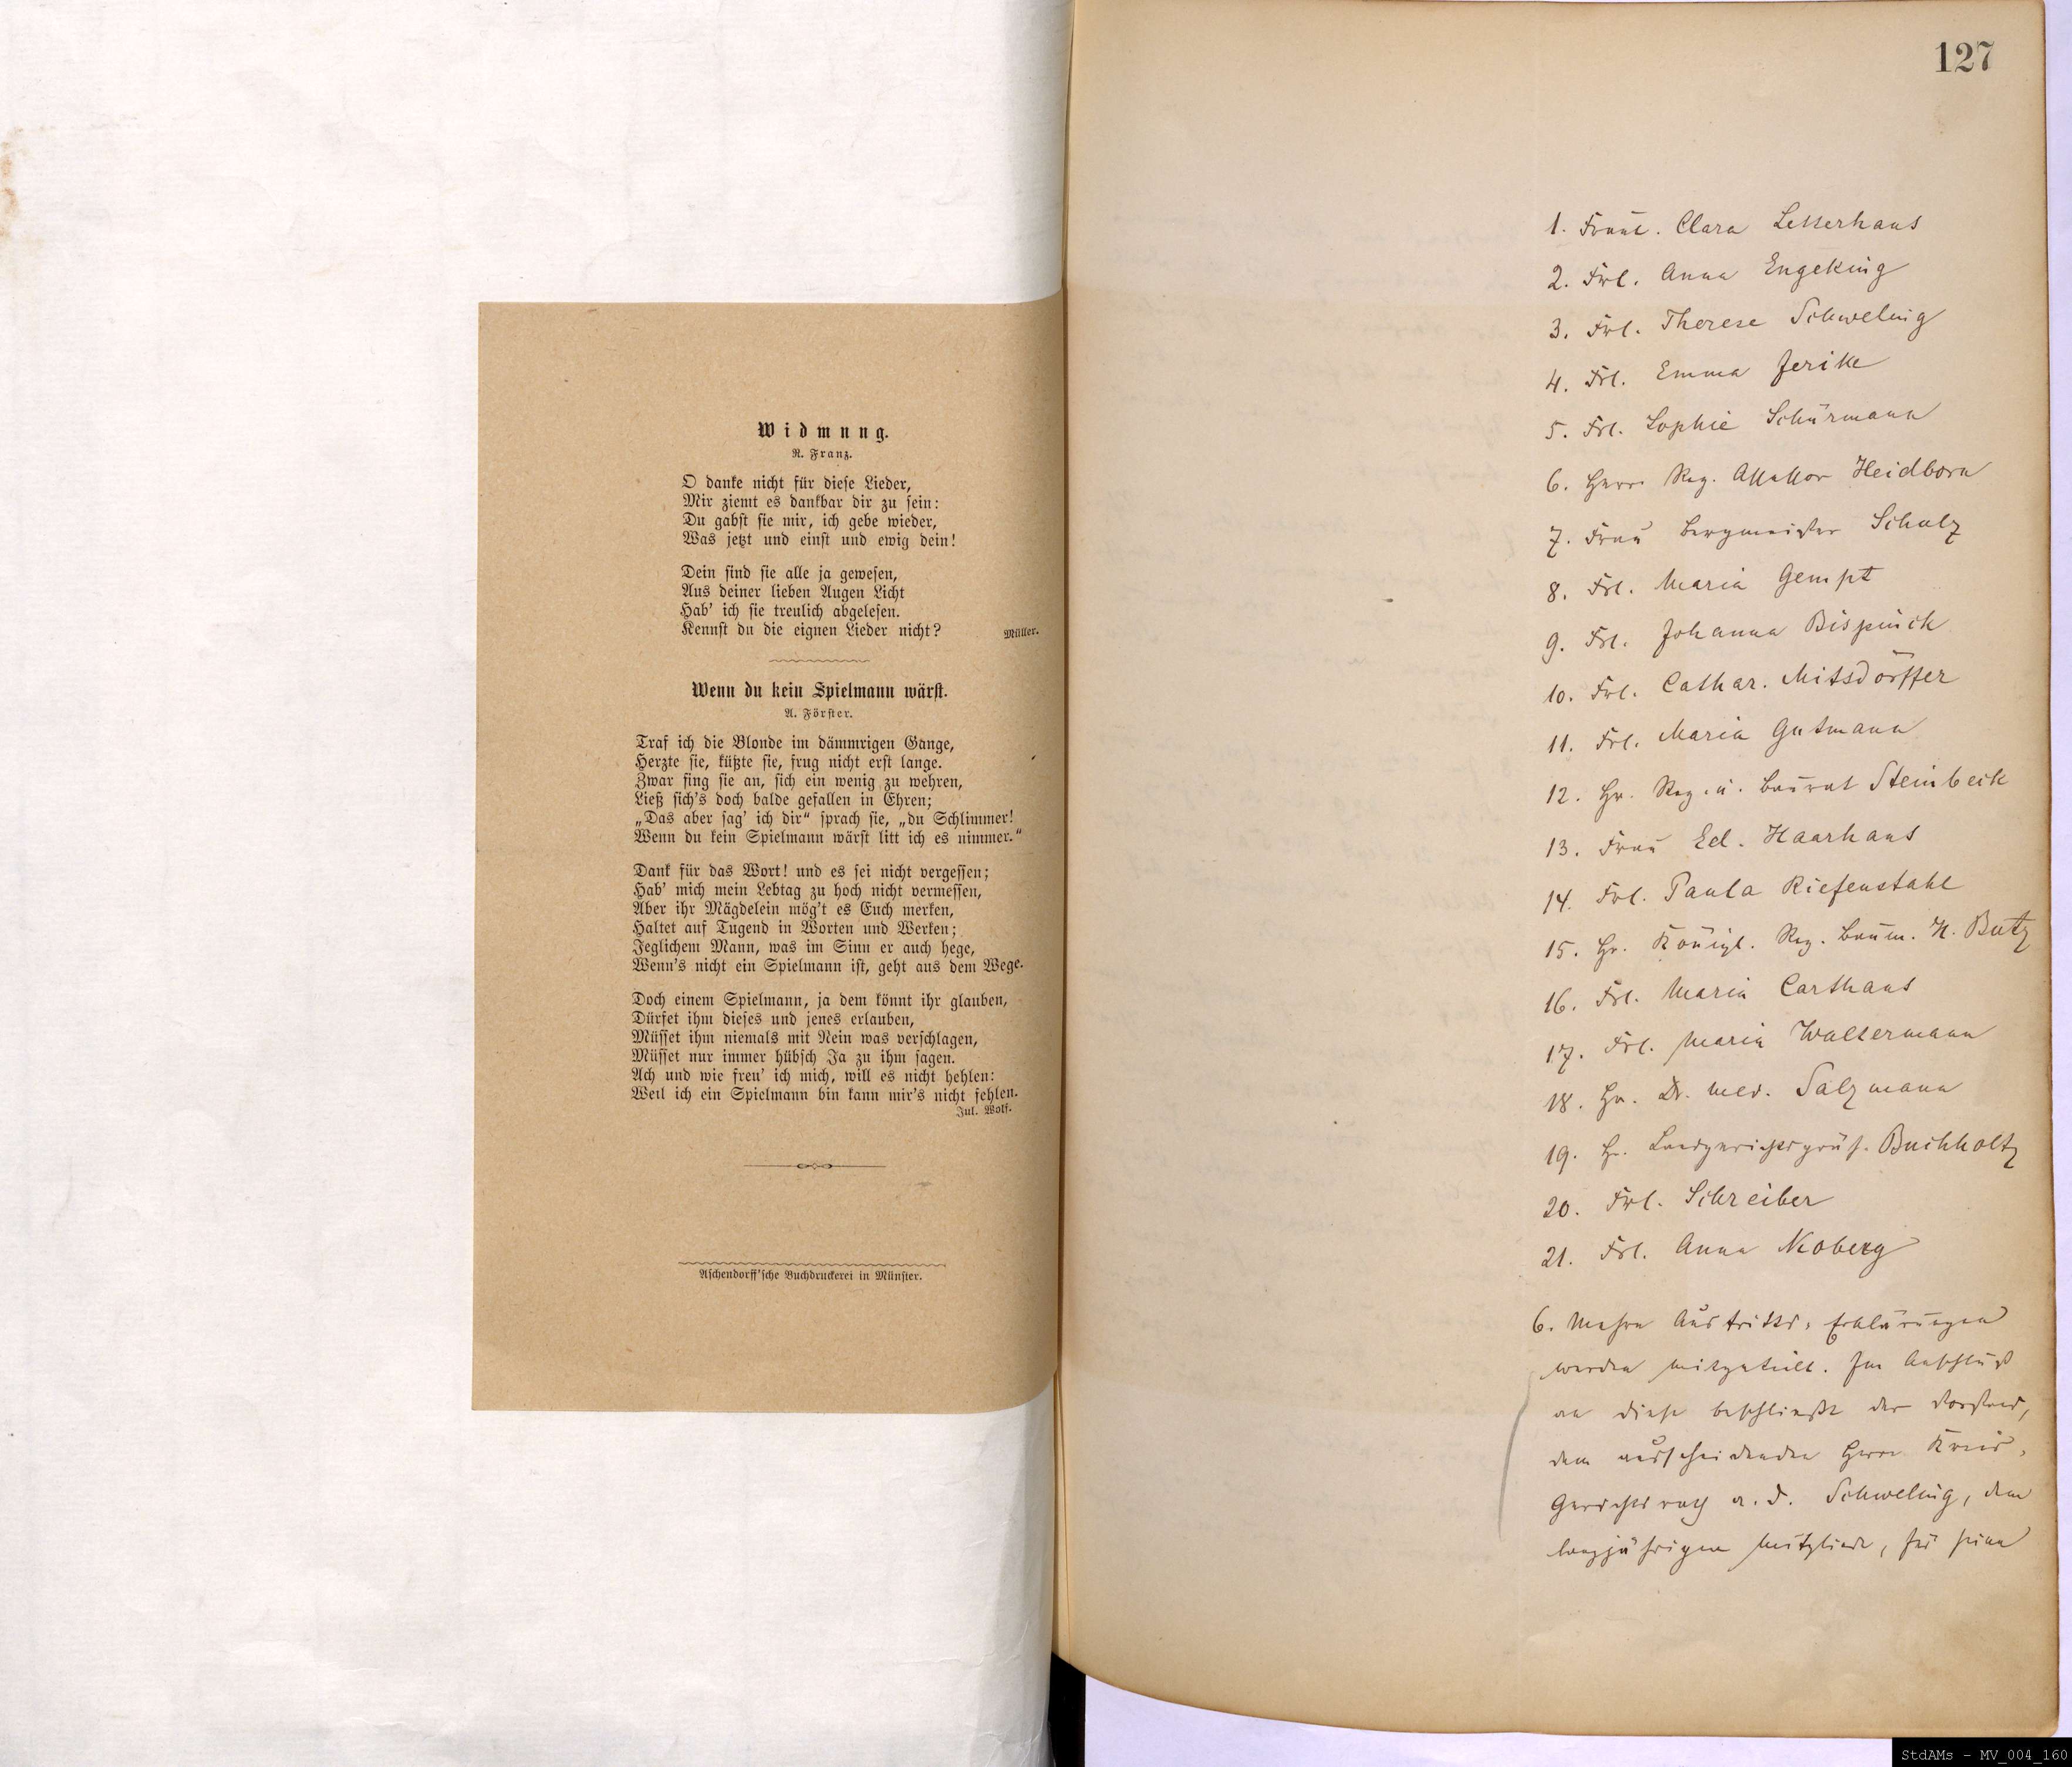 Widmung.
R. Franz.
O danke nicht für diese Lieder,
Mir ziemt es dankbar dir zu sein:
Du gabst sie mir, ich gebe wieder,
Was jetzt und einst und ewig dein!
Dein sind sie alle ja gewesen,
Aus deiner lieben Augen Licht
Hab' ich sie treulich abgelesen.
Kennst du die eignen Lieder nicht?
Müller.
Wenn du kein Spielmann wärst.
A. Förster.
Traf ich die Blonde im dämmrigen Gange,
Herzte sie, küßte sie, frug nicht erst lange.
Zwar fing sie an, sich ein wenig zu wehren,
Ließ sich's doch balde gefallen in Ehren;
„Das aber sag' ich dir“ sprach sie, „du Schlimmer!
Wenn du kein Spielmann wärst litt ich es nimmer.“
Dank für das Wort! und es sei nicht vergessen;
Hab' mich mein Lebtag zu hoch nicht vermessen,
Aber ihr Mägdelein mög't es Euch merken,
Haltet auf Tugend in Worten und Werken;
Jeglichem Mann, was im Sinn er auch hege,
Wenn's nicht ein Spielmann ist, geht aus dem Wege.
Doch einem Spielmann, ja dem könnt ihr glauben,
Dürfet ihm dieses und jenes erlauben,
Müsset ihm niemals mit Nein was verschlagen,
Müsset nur immer hübsch Ja zu ihm sagen.
Ach und wie freu' ich mich, will es nicht hehlen:
Weil ich ein Spielmann bin kann mir's nicht fehlen.
Jul. Wolf.
Aschendorff'sche Buchdruckerei in Münster.
127
1. Fräul. Clara Letterhaus
2. Frl. Anna Engeking
3. Frl. Therese Schweling
4. Frl. Emma Jerike
5. Frl. Sophie Schürmann
6. Herr Reg. Assessor Heidborn
7. Frau Bergmeister Schulz
8. Frl. Maria Gempt
9. Frl. Johanna Bispinck
10. Frl. Cathar. Mitsdörffer
11. Frl. Maria Gutmann
12. Hr. Reg. u. Baurat Steinbeck
13. Frau Ed. Haarhaus
14. Frl. Paula Riefenstahl
15. Hr. Königl. Reg. Baum. H. Butz
16. Frl. Maria Carthaus
17. Frl. Maria Waltermann
18. Hr. Dr. med. Salzmann
19. Hr. Landgerichtspräs. Buchholtz
20. Frl. Schreiber
21. Frl. Anna Noberg
6. Mehre Austritts-Erklärungen
werden mitgeteilt. Im Anschluß
an diese beschließt der Vorstand,
dem ausscheidenden Herrn Kreis-
Gerichtsrath a. D. Schweling, dem
langjährigen Mitgliede, für seine
StdAMs - MV_004_160